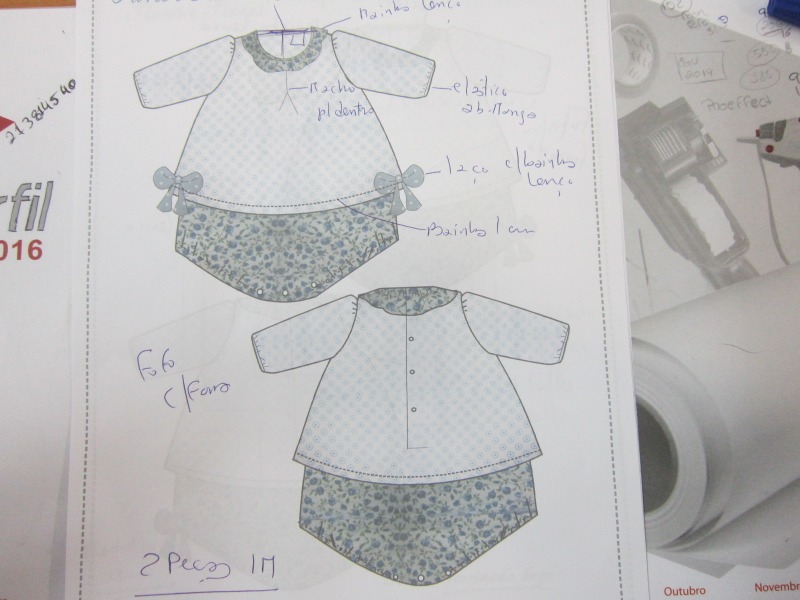 Bainha lenço
Macho
p/ dentro
elástico
laço c/ bainha
lenço
Bainha 1 cm
Fofo
c/ Forro
2 Peças 1M
21 3814540
rfil
016
Mov
2017
Proeffect
Outubro
Novemb